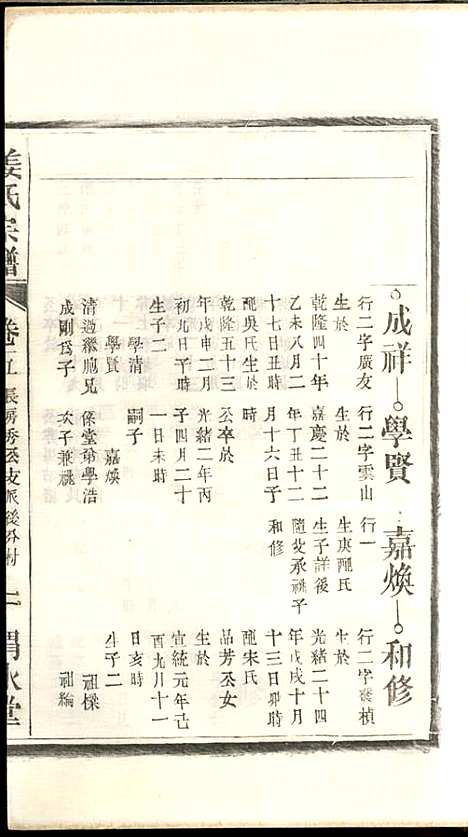 成祥
行二字廣友
生於
乾隆四十年
乙未八月二
十七日丑時
配吳氏生於
乾隆五十三
年戊申二月
初九日午時
生子二
學賢
學清
清過繼胞兄
成剛為子
學賢
行二字雲山
生於
嘉慶二十二
年丁丑十二
月十六日子
時
卒於
光緒二年丙
子四月二十
一日未時
嗣子
嘉煥
保堂弟學浩
次子兼祧
嘉煥
行一
生庚配氏
生子詳後
隨父承祧子
和修
和修
行二字襄楨
生於
光緒二十四
年戊戌十月
十三日卯時
配宋氏
品芳公女
生於
宣統元年己
酉九月十一
日亥時
生子二
祖樑
祖綸
姜氏宗譜
卷十五
長房秀公支派後外村
二
渭水堂